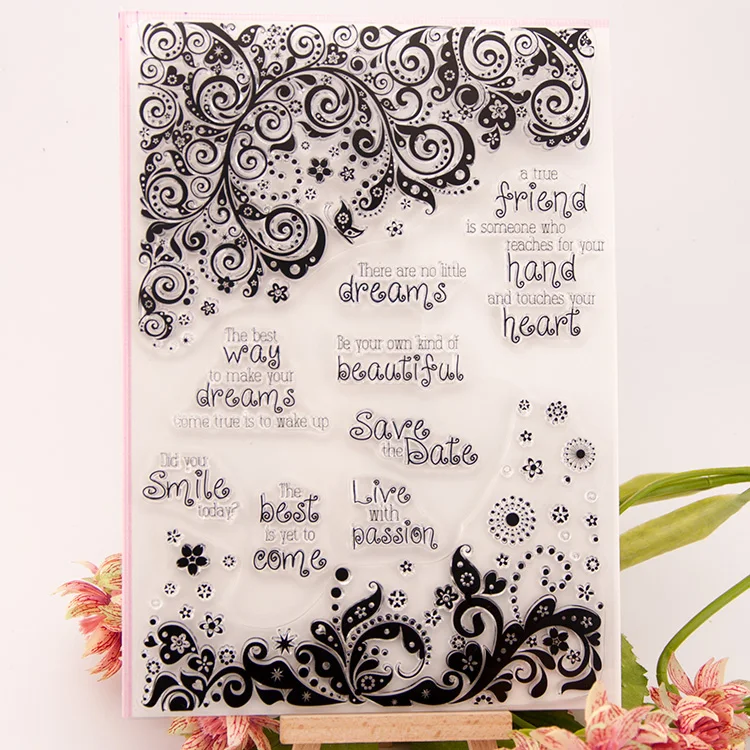 a true
friend
is someone who
reaches for your
hand
and touches your
heart
There are no little
dreams
The best
way
to make your
dreams
come true is to wake up
Be your own kind of
beautiful
Save
the Date
Did you
Smile
today?
The
best
is yet to
come
Live
with
passion